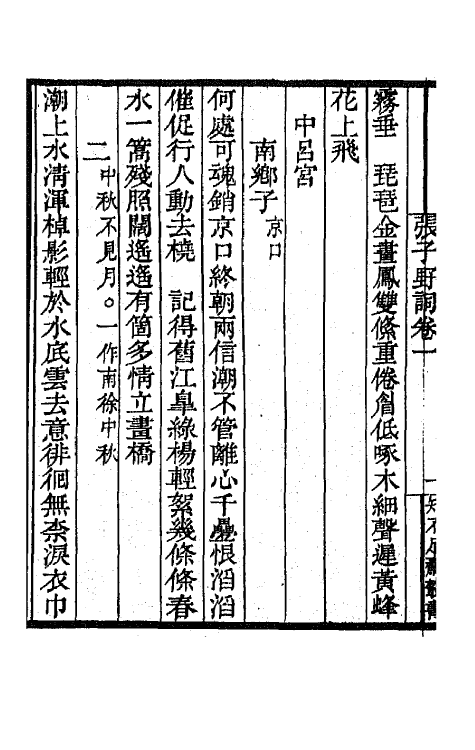 張子野詞卷一
一 知不足齋叢書
霧垂　琵琶金畫鳳雙絛重倦眉低啄木細聲遲黃蜂
花上飛
中呂宮
南鄉子京口
何處可魂銷京口終朝兩信潮不管離心千疊恨滔滔
催促行人動去橈　記得舊江臯綠楊輕絮幾條條春
水一篙殘照闊遙遙有箇多情立畫橋
二中秋不見月。一作南徐中秋
潮上水清渾棹影輕於水底雲去意徘徊無柰淚衣巾